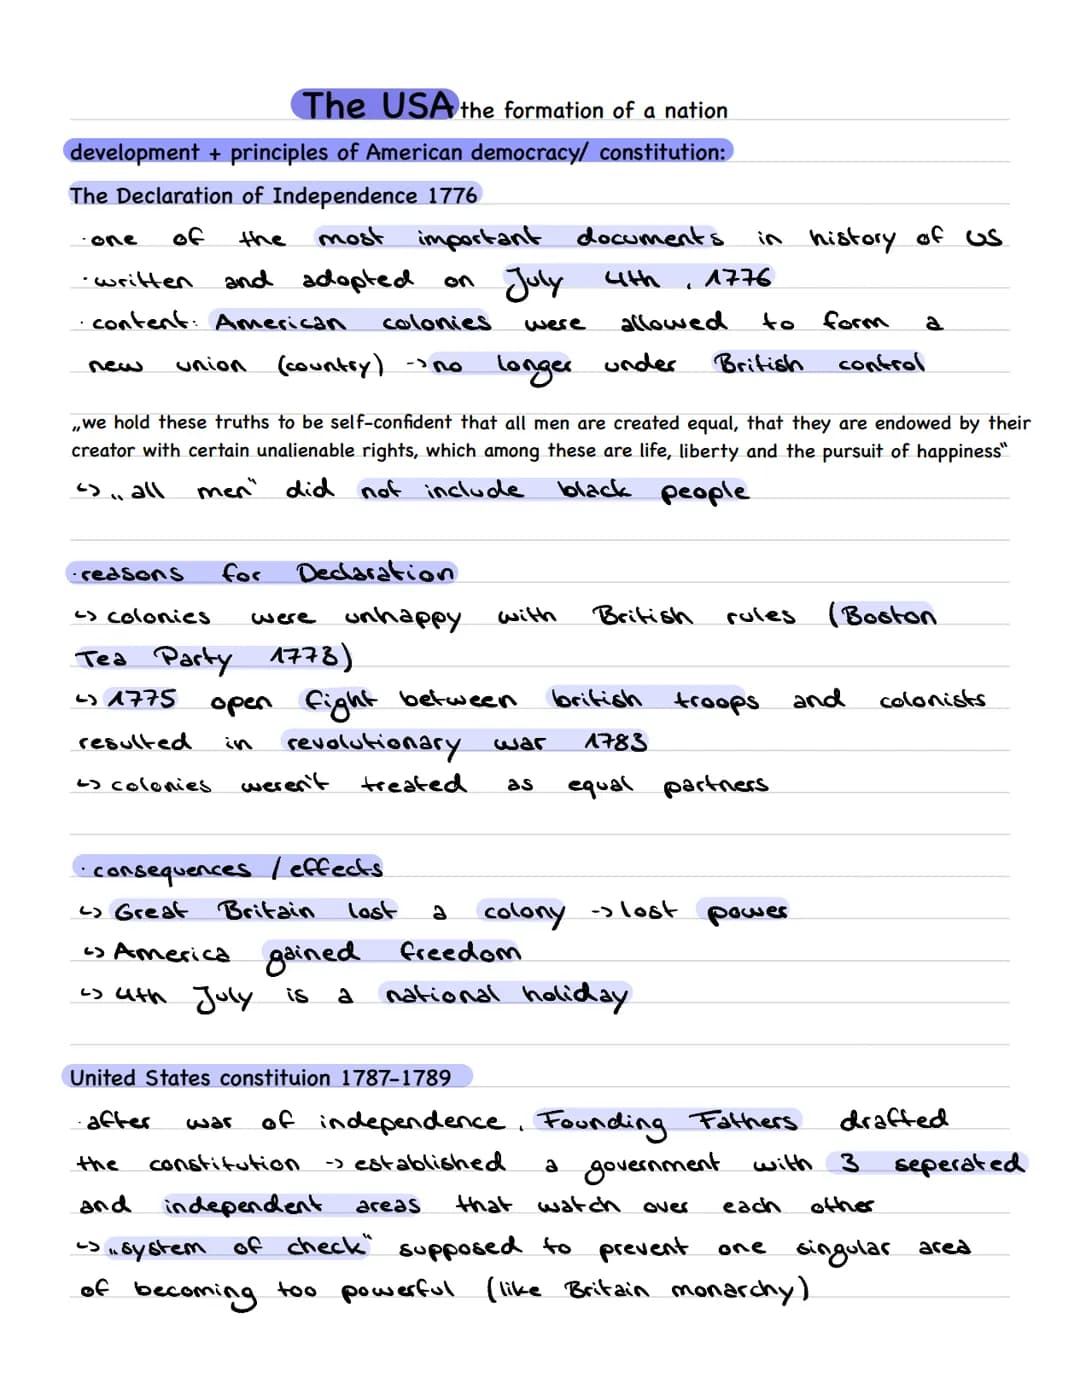 The USA the formation of a nation
development + principles of American democracy/ constitution:
The Declaration of Independence 1776
· one of the most important documents in history of US
· written and adopted on July 4th, 1776
· content: American colonies were allowed to form a
new union (country) -> no longer under British control
„we hold these truths to be self-confident that all men are created equal, that they are endowed by their
creator with certain unalienable rights, which among these are life, liberty and the pursuit of happiness“
↳ „all men“ did not include black people
· reasons for Declaration
↳ colonies were unhappy with British rules (Boston
Tea Party 1773)
↳ 1775 open fight between british troops and colonists
resulted in revolutionary war 1783
↳ colonies weren't treated as equal partners
· consequences / effects
↳ Great Britain lost a colony -> lost power
↳ America gained freedom
↳ 4th July is a national holiday
United States constituion 1787-1789
· after war of independence, Founding Fathers drafted
the constitution -> established a government with 3 seperated
and independent areas that watch over each other
↳ „system of check“ supposed to prevent one singular area
of becoming too powerful (like Britain monarchy)